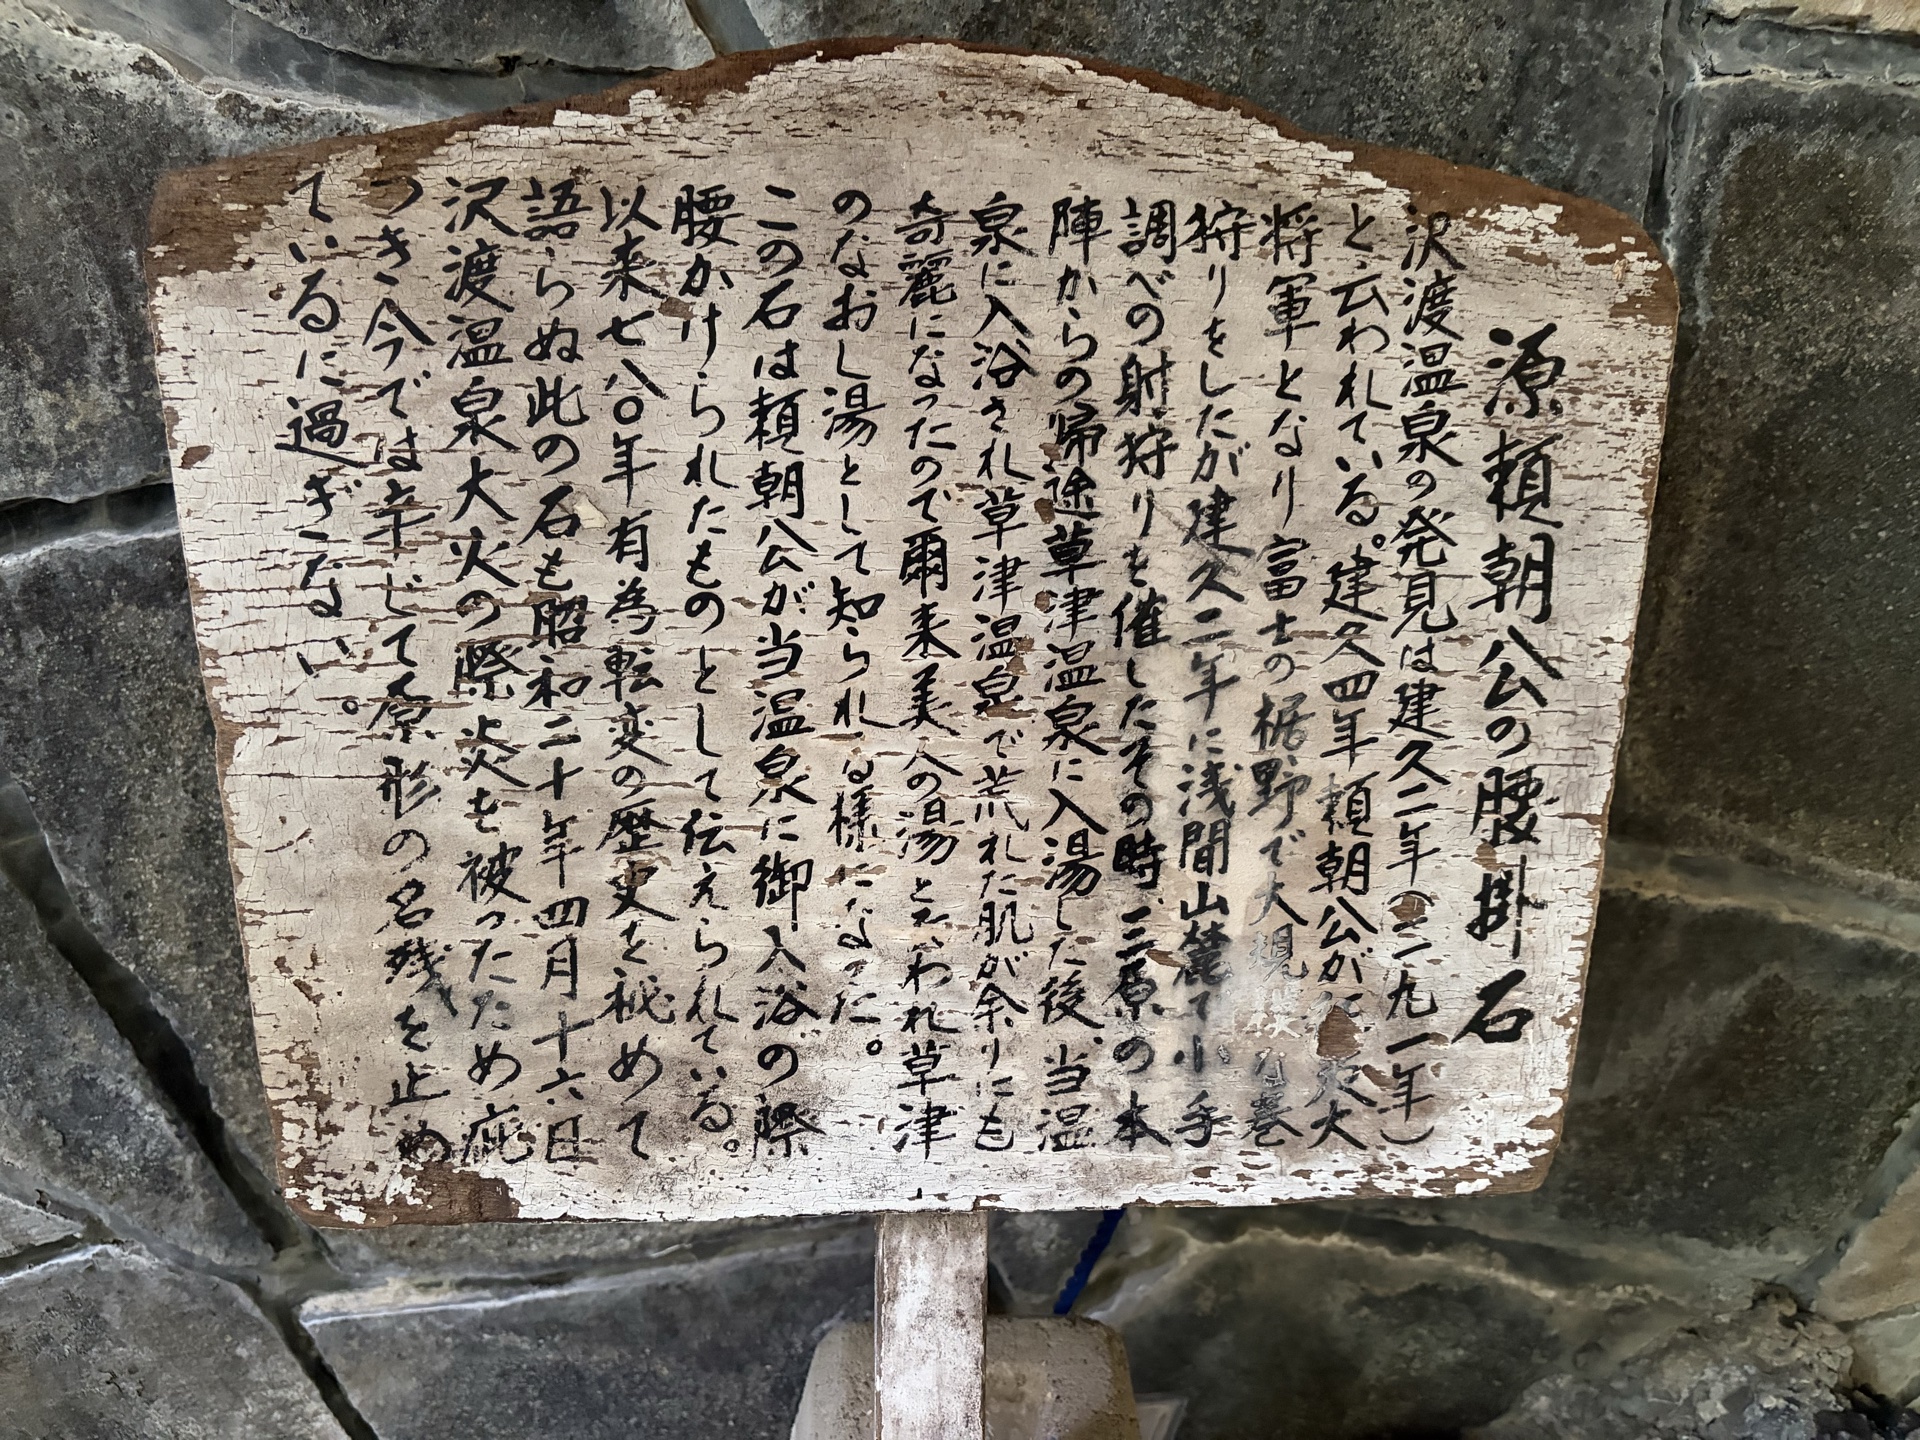 源頼朝公の腰掛石
沢渡温泉の発見は建久二年(一一九一年)
と云われている。建久四年頼朝公が征夷大
将軍となり富士の裾野で大規模な巻
狩りをしたが建久二年に浅間山麓で小手
調べの射狩りを催したその時、三原の本
陣からの帰途草津温泉に入湯した後、当温
泉に入浴され草津温泉で荒れた肌が余りにも
奇麗になったので爾来美人の湯と云われ草津
のなおし湯として知られる様になった。
この石は頼朝公が当温泉に御入浴の際
腰かけられたものとして伝えられている。
以来七八〇年有為転変の歴史を秘めて
語らぬ此の石も昭和二十年四月十六日
沢渡温泉大火の際炎を被ったため疵
つき今では辛じて原形の名残を止め
ているに過ぎない。